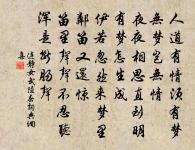 人道有情須有夢
無夢豈無情
夜夜相思直到明
有夢怎生成
伊若忽然來夢里
鄰笛又還驚
笛里聲聲不忍聽
渾是斷腸聲
連靜女武陵春詞典網